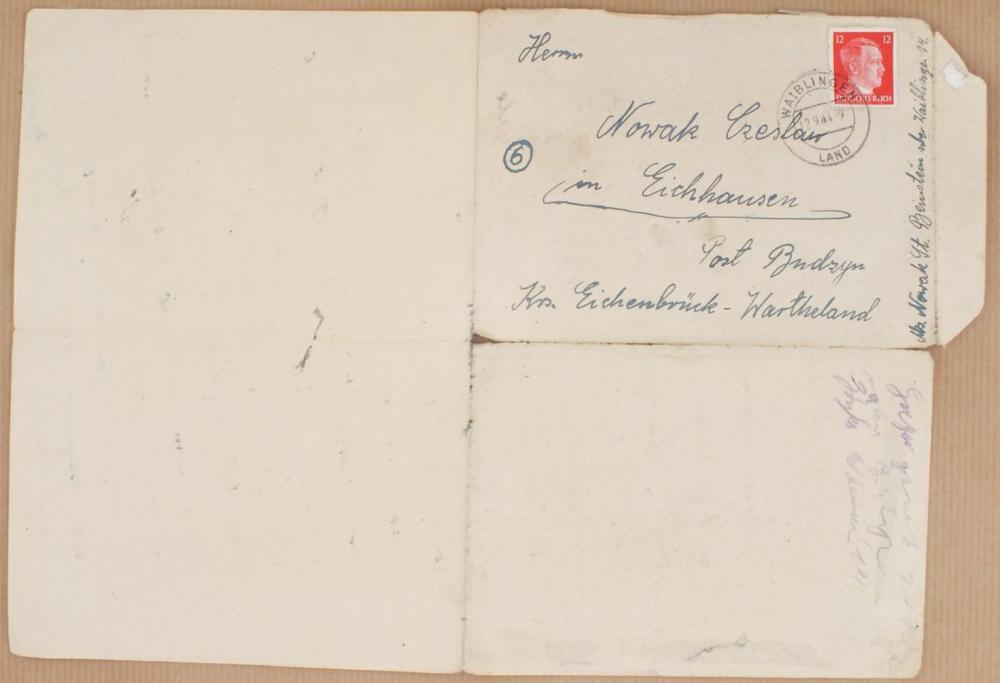 Herrn
12 12
DEUTSCHES REICH
WAIBLINGEN
12.9.44
LAND
Nowak Czeslaw
6
in Eichhausen
Post Budzyn
Krs. Eichenbrück - Wartheland
Abs. Nowak St. Beinstein über Waiblingen 14.